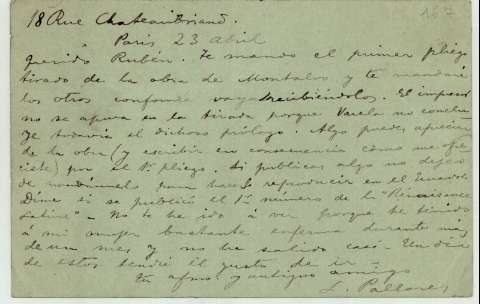 18 Rue Chateaubriand.
167
Paris 23 abril
Querido Rubén. Te mando el primer pliego
tirado de la obra de Montalvo y te mandaré
los otros conforme vaya recibiéndolos. El impresor
no se apura en la tirada porque Varela no concluye
todavía el dichoso prólogo. Algo puedes apreciar
de la obra (y escribir en consecuencia como me ofre
ciste) por el 1er pliego. Si publicas algo no dejes
de mandármelo para hacerlo reproducir en el Ecuador.
Dime si se publicó el 1er número de la "Renaissance
Latine" - No te he ido á ver porque he tenido
á mi mujer bastante enferma durante mas
de un mes y no he salido casi - Un día
de estos tendré el gusto de ir -
tu afmo. y antiguo amigo
L. Pallares